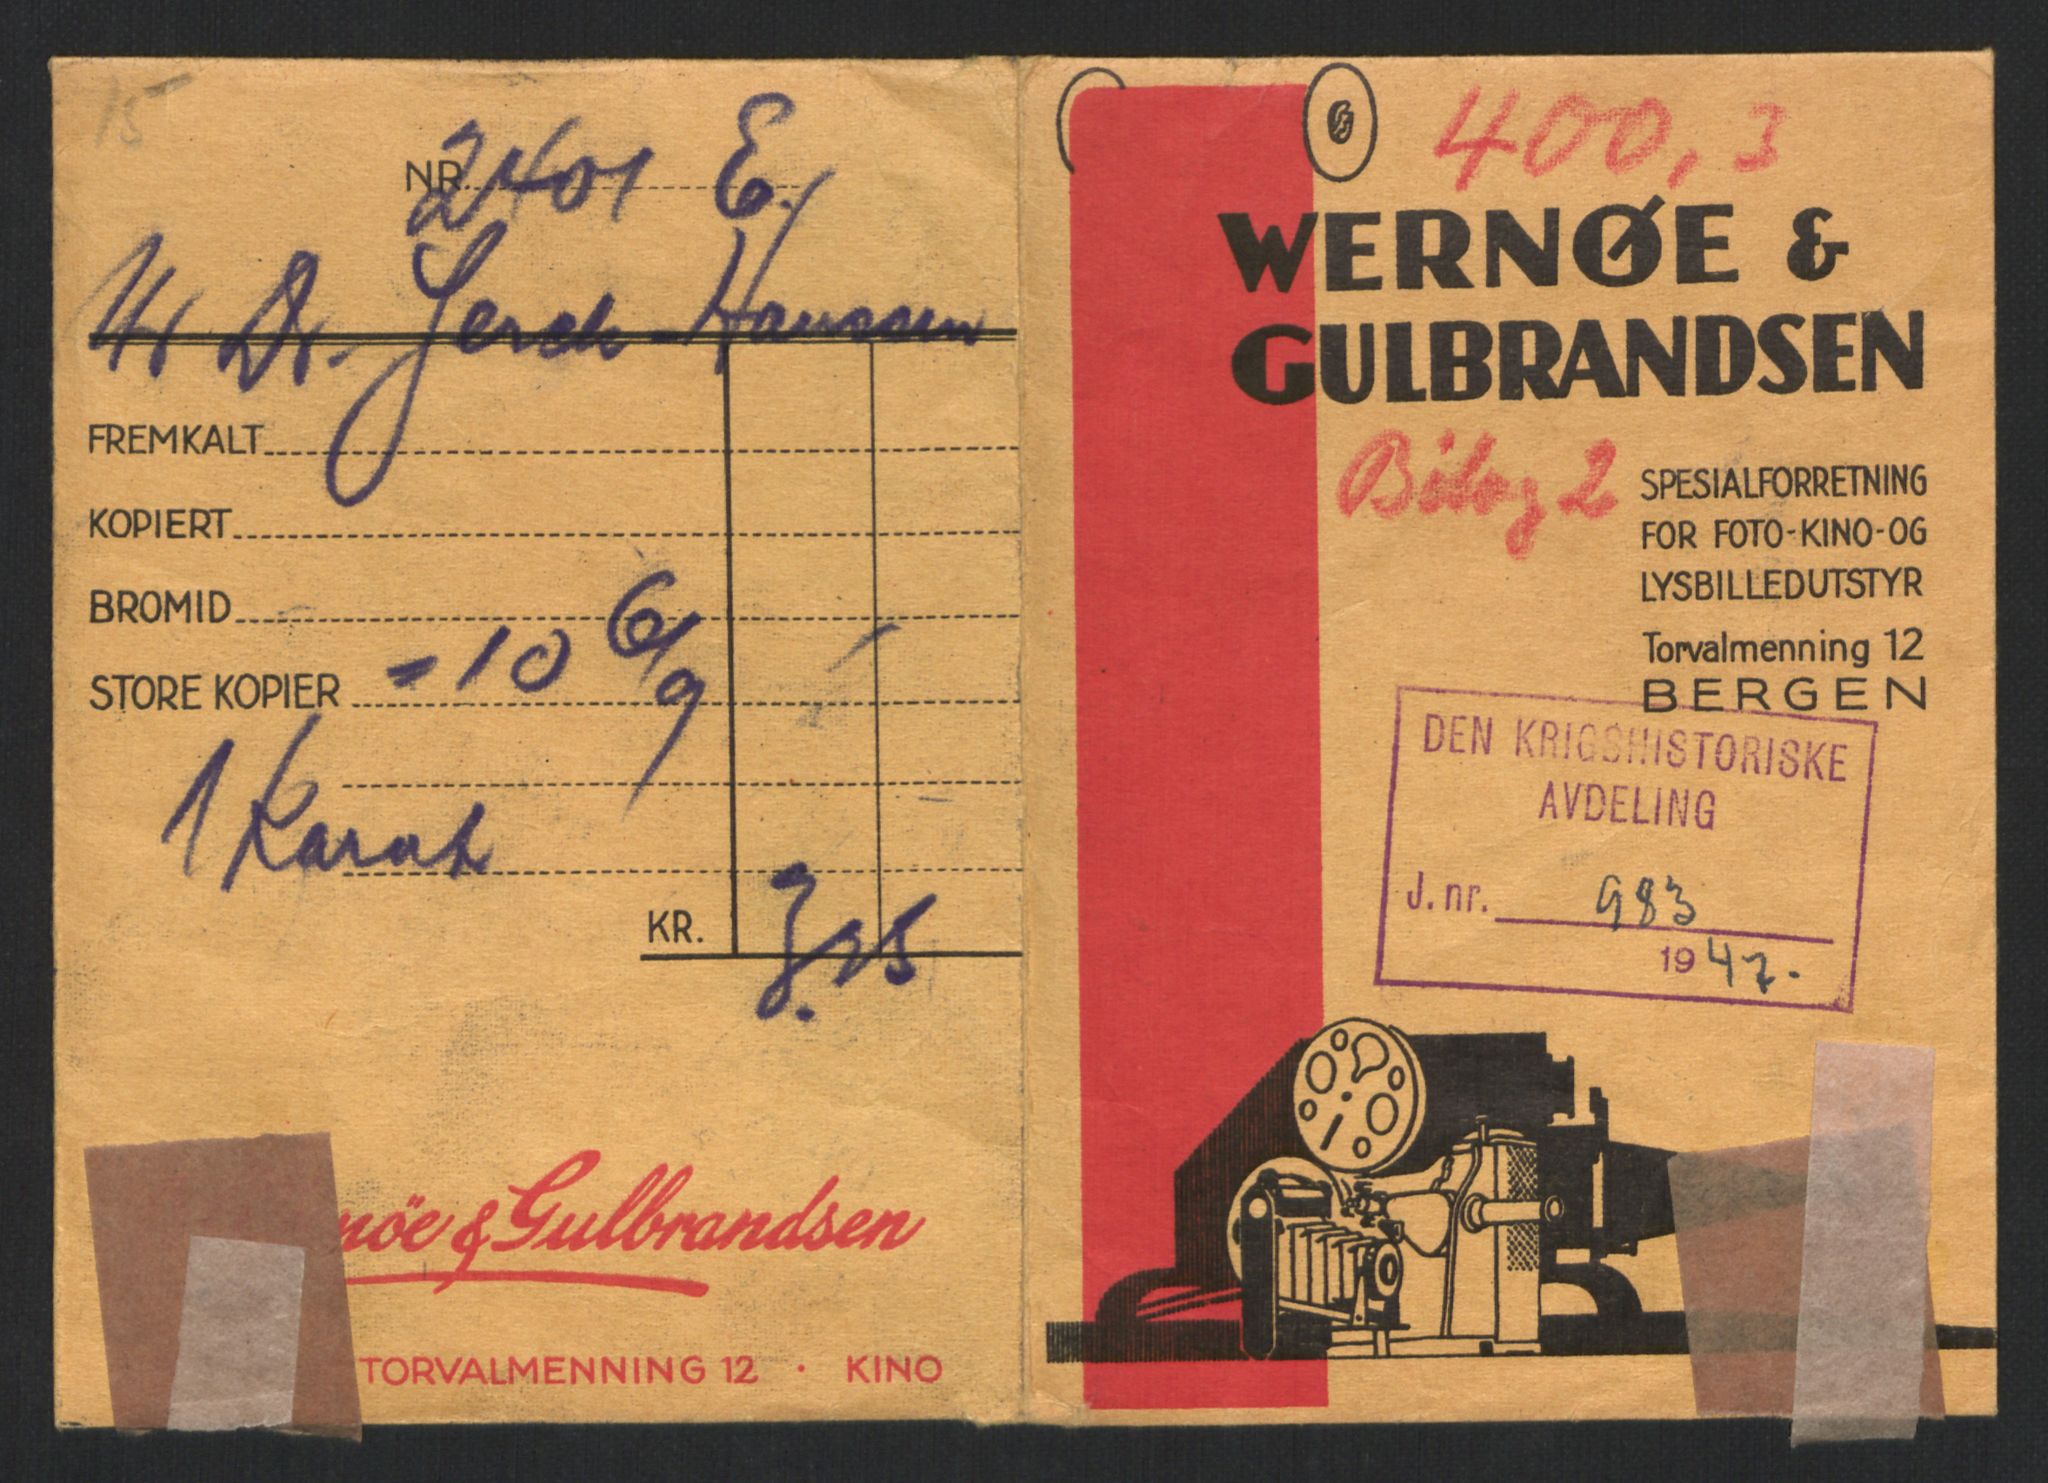 15
NR. 2401 E.
Hr Dr. Gerch-Hanssen
FREMKALT
KOPIERT
BROMID
STORE KOPIER - 10 6/9
1 Karat
KR. 3.25
nöe & Gulbrandsen
TORVALMENNING 12 · KINO
400, 3
WERNØE &
GULBRANDSEN
Bilag 2
SPESIALFORRETNING
FOR FOTO-KINO-OG
LYSBILLEDUTSTYR
Torvalmenning 12
BERGEN
DEN KRIGSHISTORISKE
AVDELING
J. nr. 983
1947.